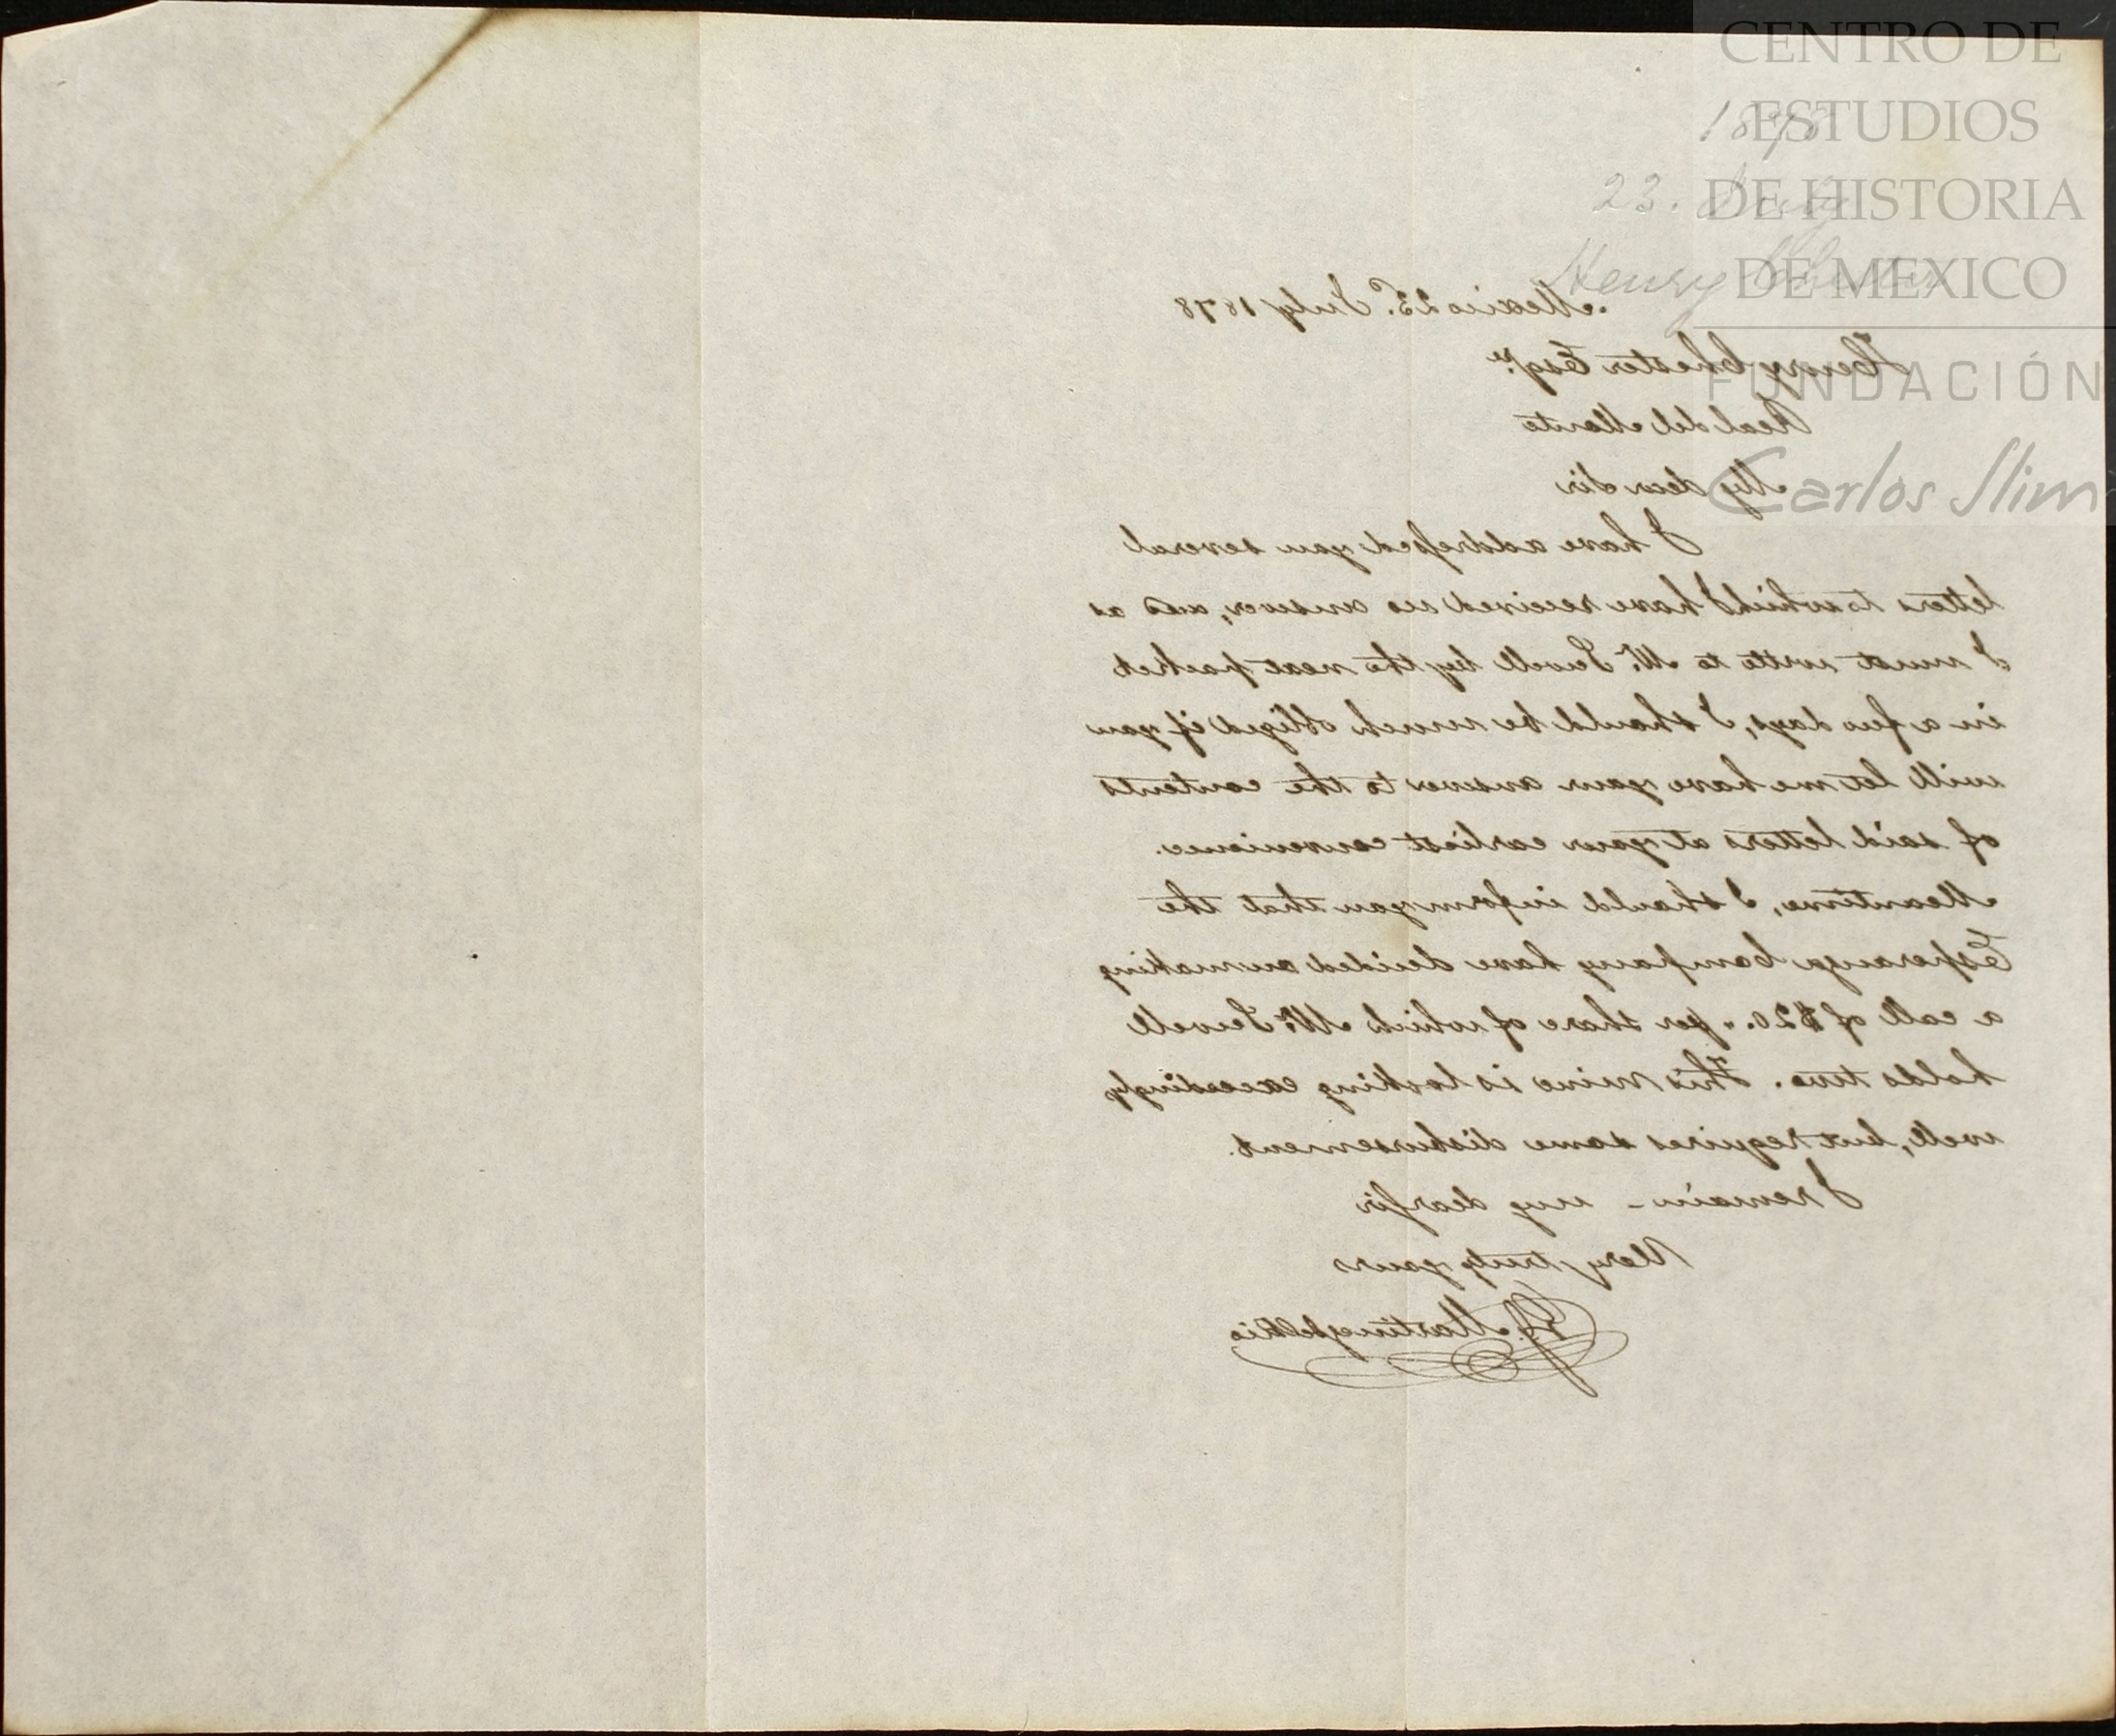 CENTRO DE
ESTUDIOS
DE HISTORIA
DE MEXICO
FUNDACIÓN
Carlos Slim
1878
23. July
Henry Chester
Mexico 23. July 1878
Henry Chester Esqre.
Real del Monte
My dear Sir
I have addressed you several
letters to which I have received no answer, and as
I must write to Mr. Sewell by the next packet
in a few days, I should be much obliged if you
will let me have your answer to the contents
of said letters at your earliest convenience.
Meantime, I should inform you that the
Esperanza Company have decided on making
a call of $20.- per share of which Mr. Sewell
holds two. This mine is looking exceedingly
well, but requires some disbursement.
I remain - my dear Sir
Very truly yours
Martinez del Rio